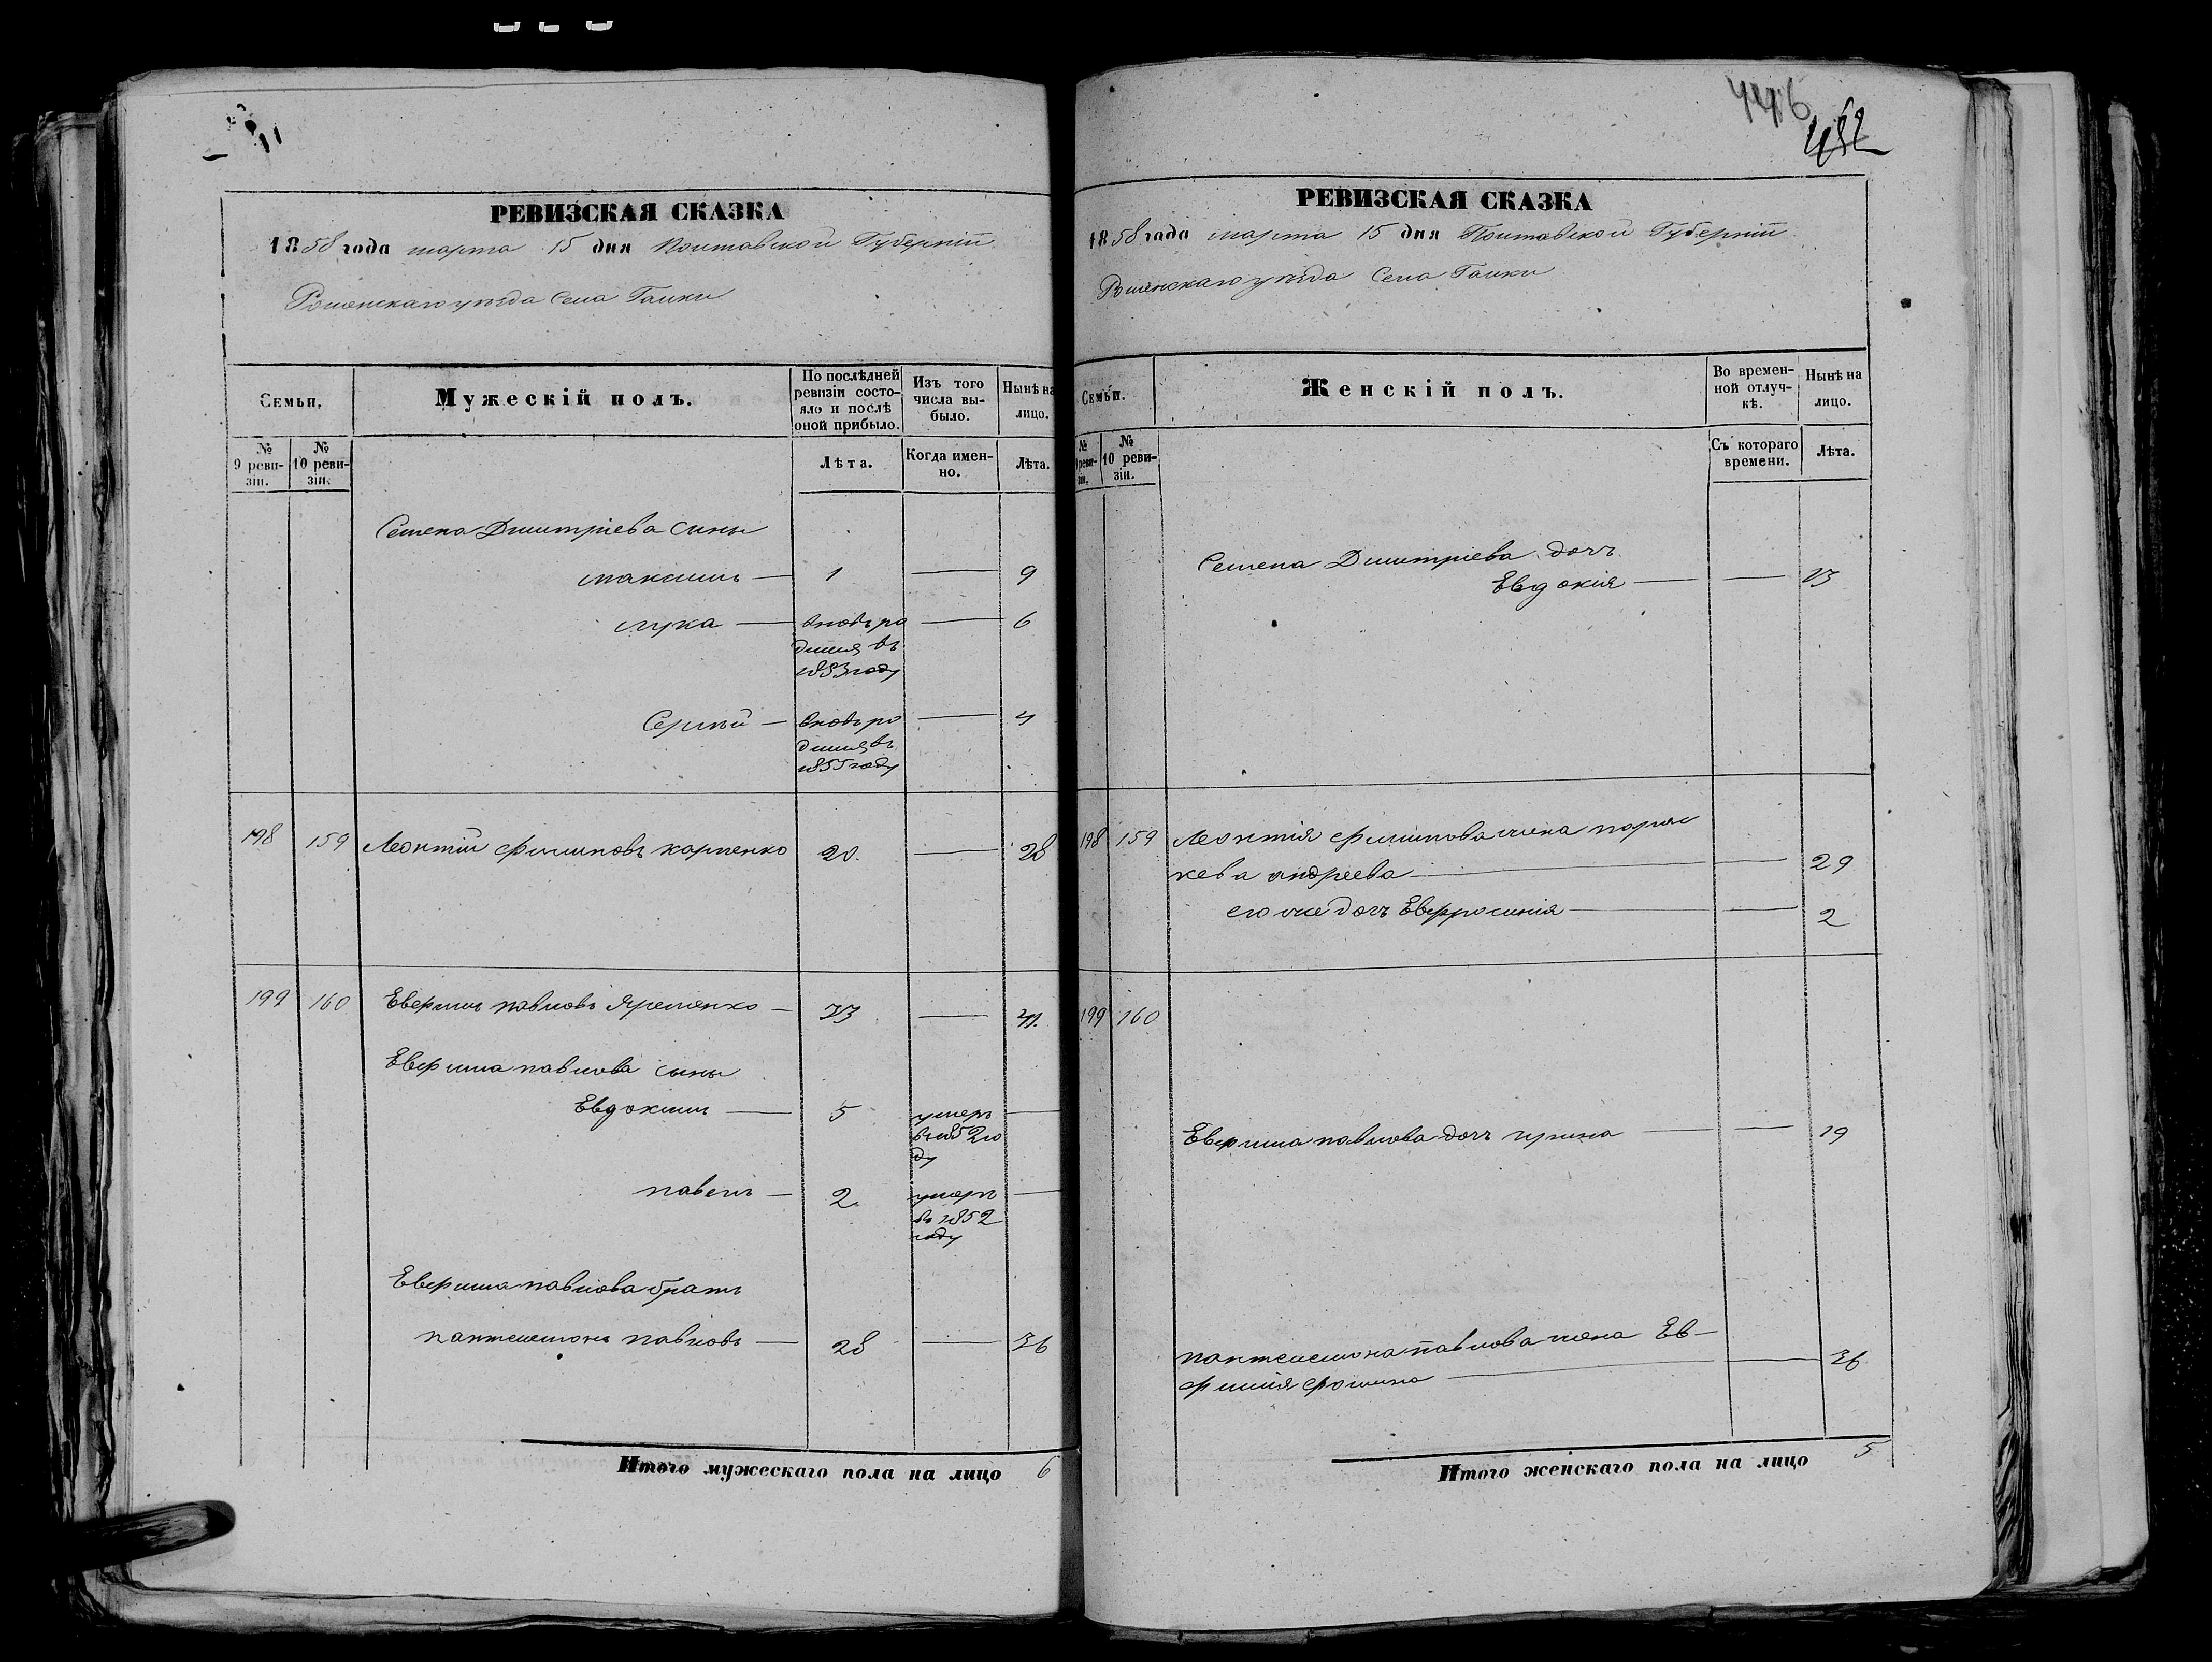 446
452
РЕВИЗСКАЯ СКАЗКА
1858 года марта 15 дня Полтавской Губерніи
Роменскаго уѣзда Села Галки
Семьи.
Мужескій полъ.
По послѣдней ревизіи состояло и послѣ оной прибыло.
Изъ того числа выбыло.
Нынѣ на лицо.
№ 9 ревизіи.
№ 10 ревизіи.
Лѣта.
Когда именно.
Лѣта.
Семена Дмитріева сыны
максимъ — 1 — 9
лука — вновь ро — 6
дился въ
1853 году
Сергѣй — вновь ро — 4
дился въ
1855 году
198 159 Леонтій Филиповъ карпенко 20. — 28
199 160 Евфимъ павловъ Яременко — 33 — 41.
Евфима павлова сыны
Евдокимъ — 5 умеръ —
въ 1852 го
ду
павелъ — 2. умеръ —
въ 1852
году
Евфима павлова братъ
пантелемонъ павловъ — 28 — 36
Итого мужескаго пола на лицо 6
РЕВИЗСКАЯ СКАЗКА
1858 года марта 15 дня Полтавской Губерніи
Роменскаго уѣзда Села Галки
Семьи.
Женскій полъ.
Во временной отлучкѣ.
Нынѣ на лицо.
№ 9 ревизіи.
№ 10 ревизіи.
Съ котораго времени.
Лѣта.
Семена Дмитріева дочь
Евдокія — — 13
198 159 Леонтія Филипова жена парас
кева андреева — — 29
его же дочь Евфросинія — — 2
199 160
Евфима павлова дочь ирина — — 19
пантелемона павлова жена Ев-
фимія Фомина — — 36
Итого женскаго пола на лицо 5